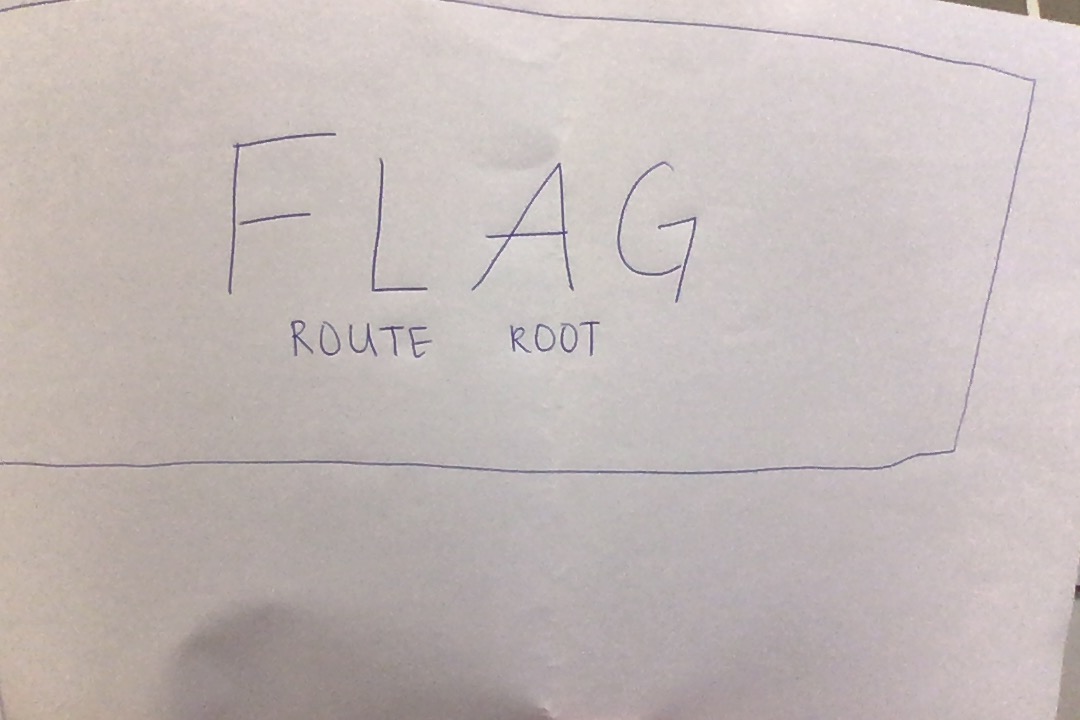 FLAG
ROUTE ROOT